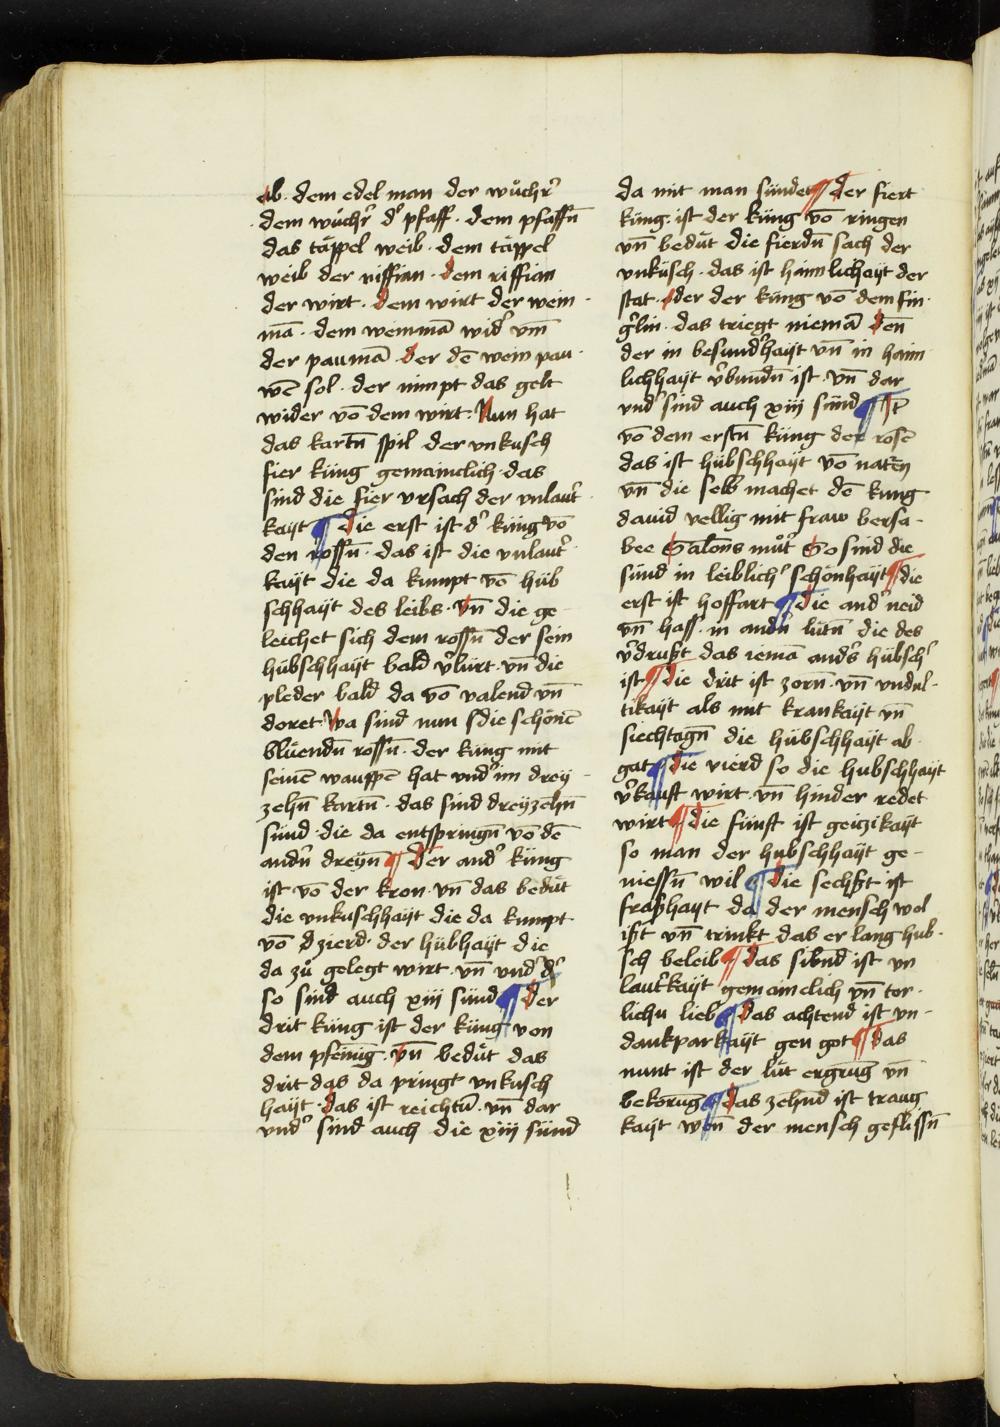 ab · dem edel man der wůchr̛
dem wůchr̛ d̛ pfaff · dem pfaffn̄
das täppel weib · dem täppel
weib der riffian · dem riffian
der wirt · dem wirt der wein
mā · dem weinmā wid̛ vm̄
der paumā · der dē wein pau
wē sol · der nimpt das gelt
wider vō dem wirt · Nun hat
das kartn̄ spil der vnkusch
fier küng gemainclich · das
sind die fier vrsach der vnlaut̛
kayt ¶ die erst ist d̛ küng vō
den rossn̄ · das ist die vnlaut̛
kayt die da kumpt vō hüb
schhayt des leibs · vn̄ die ge
leichet sich dem rossn̄ der sein
hübschhayt bald v̛lürt · vn̄ die
pleder bald da vō valend vn̄
doret wa sind nun die schönē
blüendn̄ rossn̄ · der küng mit
seinē wauppē hat vnd̛ im drey
zehn̄ kartn̄ · das sind dreyzehn̄
sünd · die da entspringn̄ vō dē
andn̄ dreyn̄ ¶ der and̛ küng
ist vō der kron · vn̄ das bedüt
die vnkuschhayt die da kumpt
vō zierd · der hübhayt die
da zů gelegt wirt · vn̄ vnd̛ d̛
so sind auch xiij sünd ¶ der
drit küng ist der küng von
dem pfening · vn̄ bedüt das
drit das da pringt vnkusch
hayt · das ist reichtū · vn̄ dar
vnd̛ sind auch die xiij sünd
da mit man sündet ¶ der fiert
küng · ist der küng vō ringen
vn̄ bedüt die fierdn̄ sach der
vnküsch · das ist haimlichayt der
stat · oder der küng vō dem fin
g̛lin · das triegt niemā den̄
der in besund̛hayt vn̄ in haim
lichhayt v̛bundn̄ ist · vn̄ dar
vnd̛ sind auch xiij sünd ¶
vō dem erstn̄ küng der rosē
das ist hübschhayt vō naten
vn̄ die selb machet dē kung
dauid vellig mit fraw bersa
bee Salons můt̛ So sind die
sünd in leiblich̛ schönhayt ¶ die
erst ist hoffart ¶ die and̛ neid
vn̄ hass · in andn̄ lütn̄ die des
v̛drußt das iemā and̛s hübsch̛
ist ¶ die drit ist zorn · vn̄ vndul
tikayt als mit krankayt vn̄
siechtagn̄ die hübschhayt ab
gat ¶ die vierd so die hubschhayt
v̛kauft wirt · vn̄ hinder redet
wirt ¶ die fünft ist geiczikayt
so man der hubschhayt ge
niessn̄ wil ¶ die sechßt ist
fraßhayt da der mensch wol
ißt vn̄ trinkt das er lang hub
sch beleib ¶ das sibn̄d ist vn
laut̛kayt gemainclich vn̄ tor
lichn lieb ¶ das achtend ist vn
dankparkayt gen got ¶ das
nünt ist der lüt ergrūg vn̄
bekorūg ¶ das zehn̄d ist traug
kayt wen̄ der mensch geflissn̄